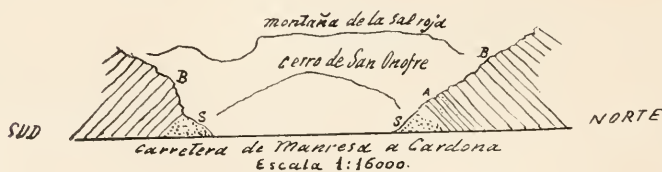 montaña de la sal roja
B
B
cerro de San Onofre
A
S
S
SUD
NORTE
Carretera de Manresa a Cardona
Escala 1:16000.